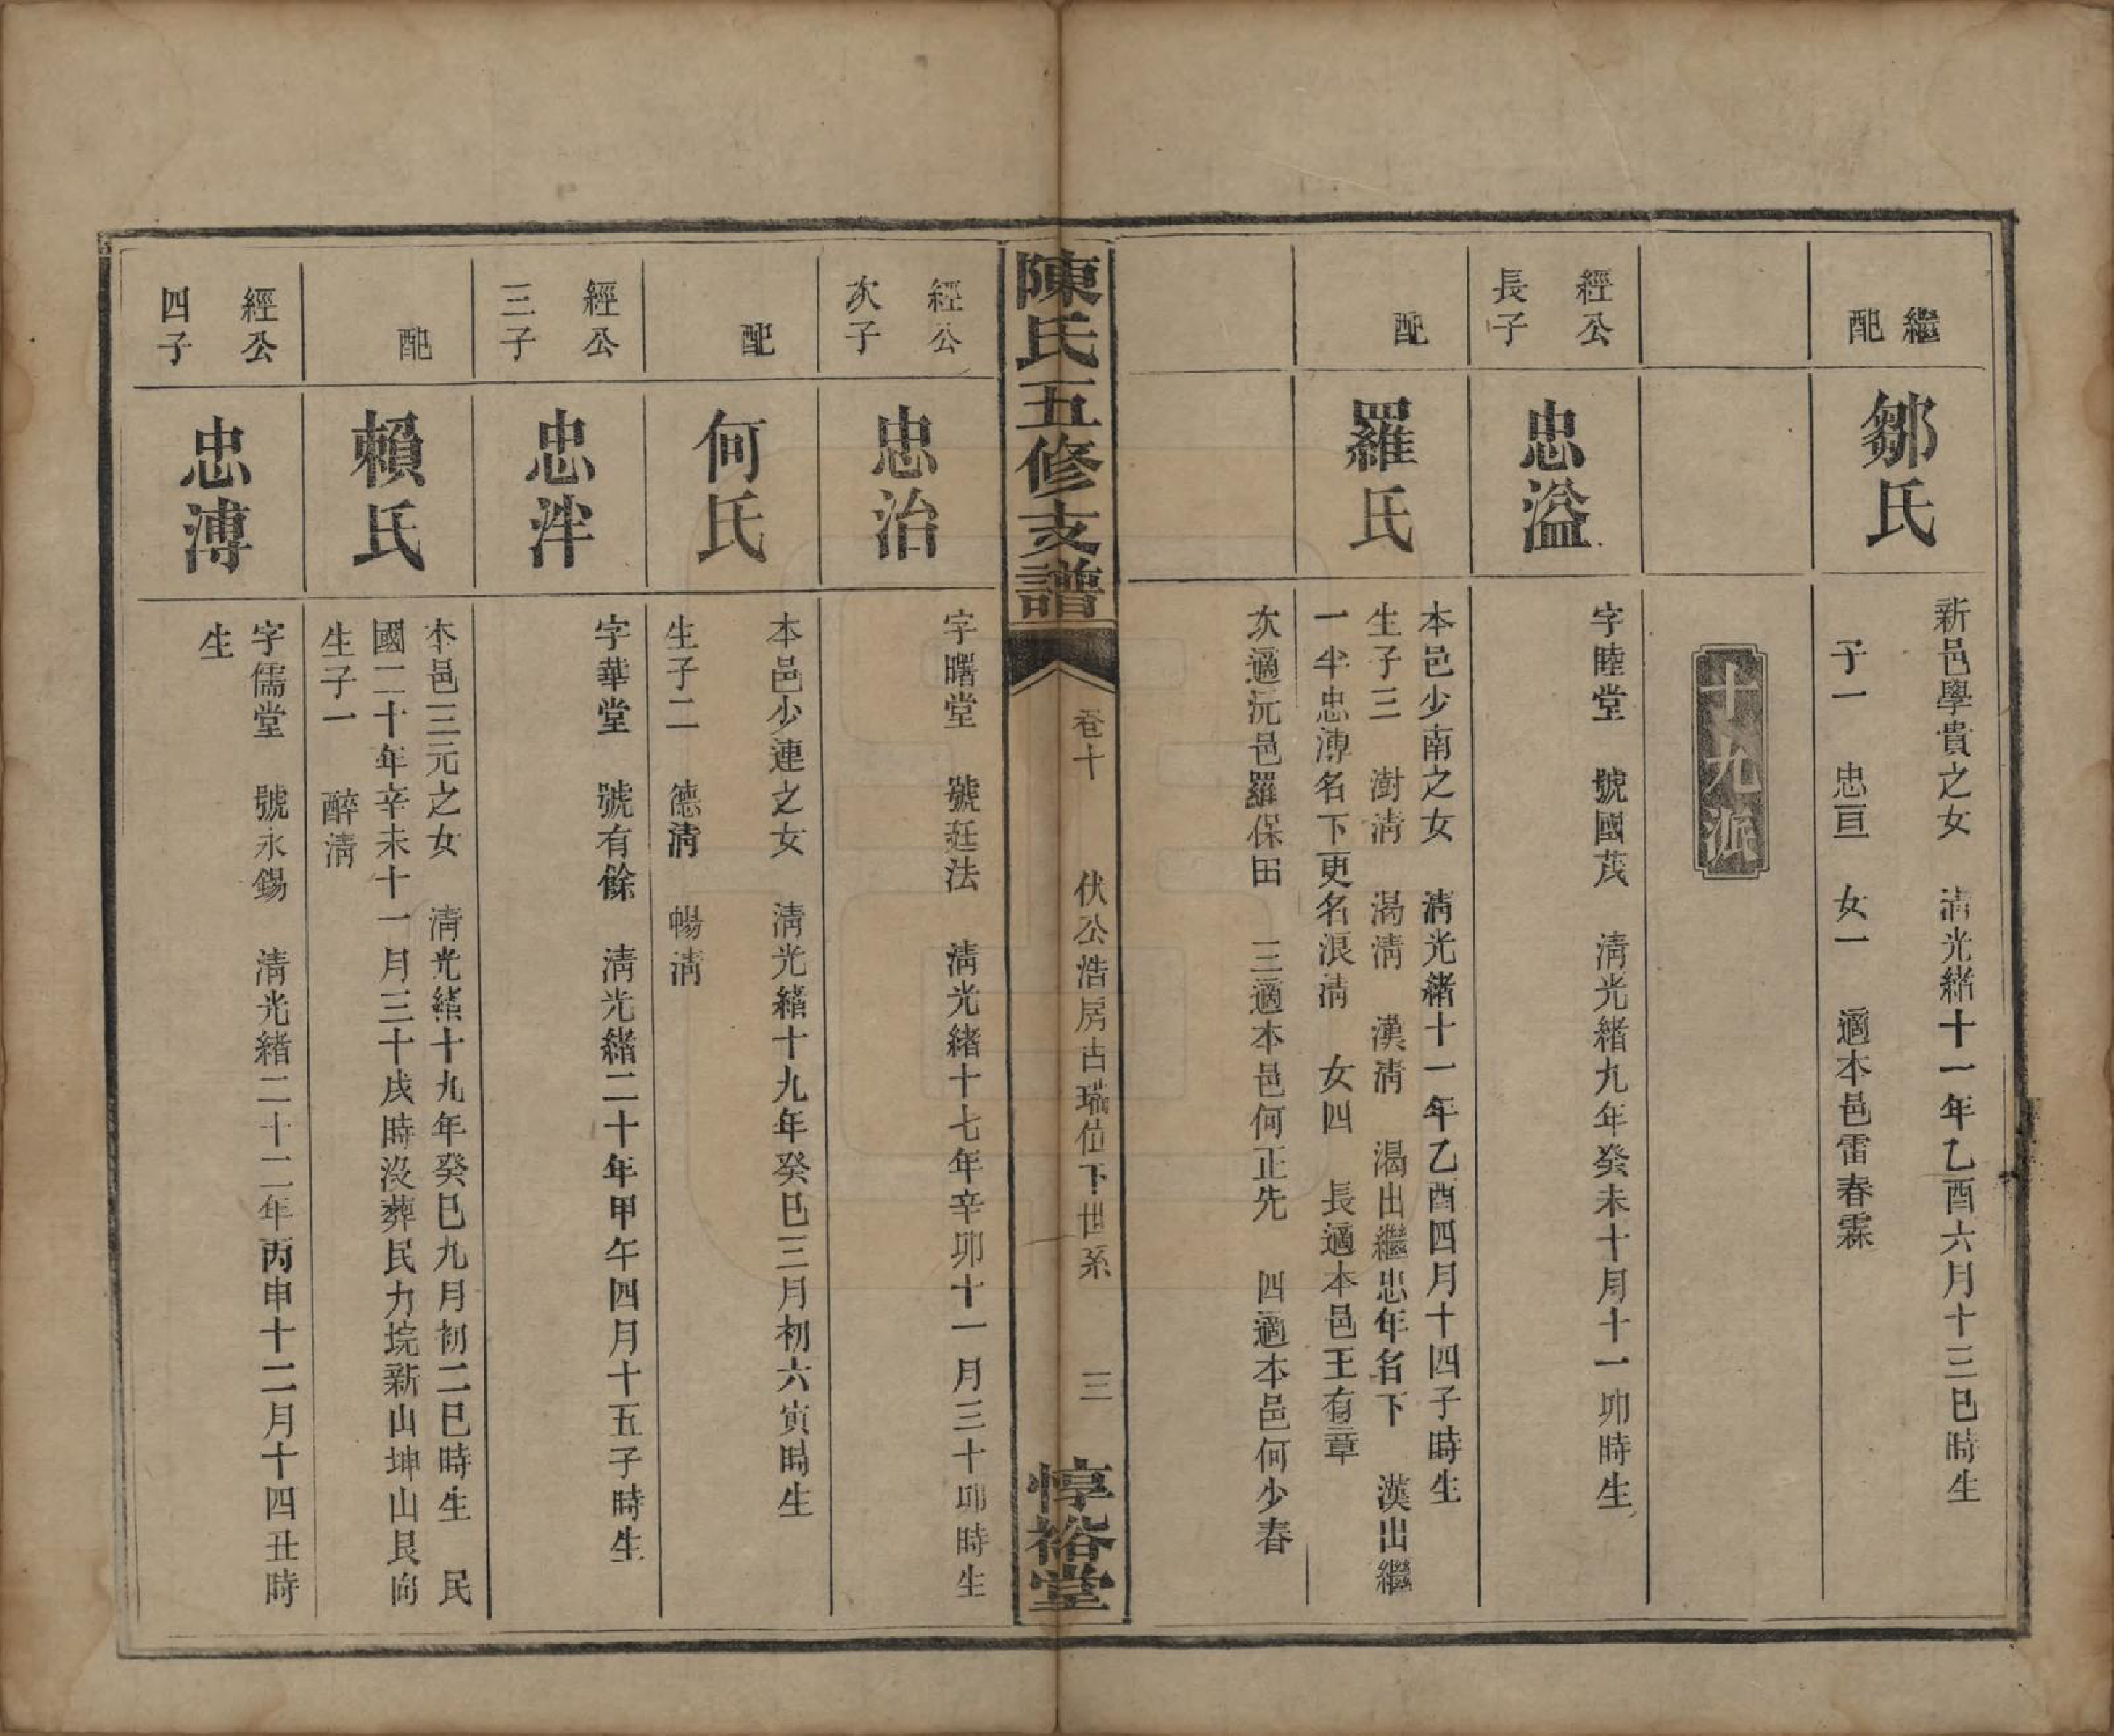 繼配
鄒氏
新邑學貴之女　清光緒十一年乙酉六月十三巳時生
子一　忠亘　女一　適本邑雷春霖
十九派
經公
長子
忠溢
字睦堂　號國茂　清光緒九年癸未十月十一卯時生
配
羅氏
本邑少南之女　清光緒十一年乙酉四月十四子時生
生子三　澍清　渴清　漢清　渴出繼忠年名下　漢出繼
一半忠溥名下更名浪清　女四　長適本邑王有章
次適沅邑羅保田　三適本邑何正先　四適本邑何少春
陳氏五修支譜
卷十
伏公浩房古瑞位下世系
三
惇裕堂
經公
次子
忠治
字曙堂　號廷法　清光緒十七年辛卯十一月三十卯時生
配
何氏
本邑少連之女　清光緒十九年癸巳三月初六寅時生
生子二　德清　暢清
經公
三子
忠泮
字華堂　號有餘　清光緒二十年甲午四月十五子時生
配
賴氏
本邑三元之女　清光緒十九年癸巳九月初二巳時生　民
國二十年辛未十一月三十戌時沒葬民力垸新山坤山艮向
生子一　醉清
經公
四子
忠溥
字儒堂　號永錫　清光緒二十二年丙申十二月十四丑時
生